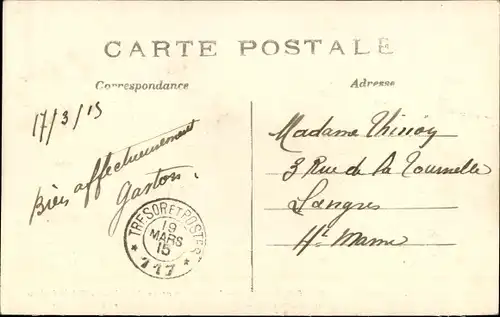 CARTE POSTALE
Correspondance
Adresse
17/3/15
Bien affectueusement
Gaston.
TRESOR ET POSTES
19
MARS
15
* 117 *
Madame
3 Rue de la Tournelle
Langres
Hte Marne